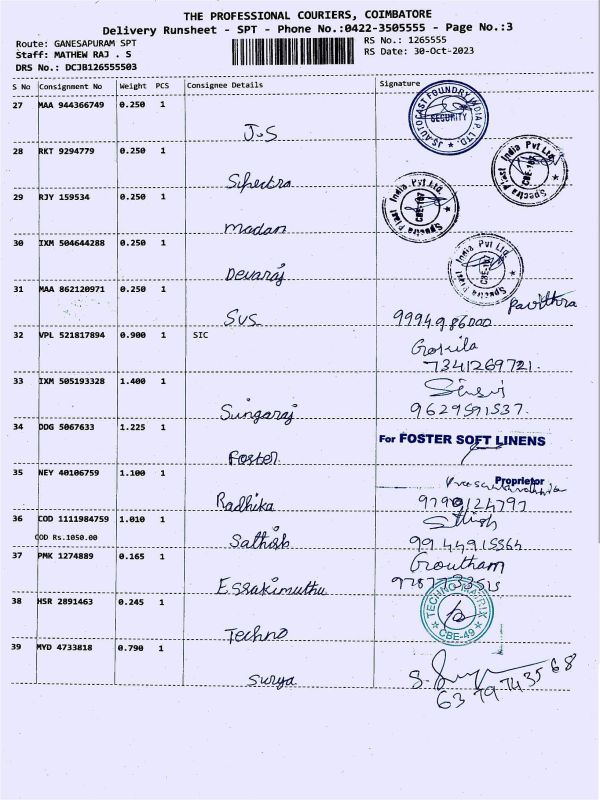 THE PROFESSIONAL COURIERS, COIMBATORE
Delivery Runsheet - SPT - Phone No.:0422-3505555 - Page No.:3
Route: GANESAPURAM SPT
RS No.: 1265555
Staff: MATHEW RAJ . S
RS Date: 30-Oct-2023
DRS No.: DCJB126555503
S No Consignment No Weight PCS Consignee Details Signature
27 MAA 944366749 0.250 1
J.S
JS AUTOCAST FOUNDRY INDIA P. LTD. SECURITY
28 RKT 9294779 0.250 1
Spectra
Spectra Pixel India Pvt Ltd. CBE-107
29 RJY 159534 0.250 1
Madan
Spectra Pixel India Pvt Ltd. CBE-107
30 IXM 504644288 0.250 1
Devaraj
Spectra Pixel India Pvt Ltd.
31 MAA 862120971 0.250 1
Pavithra
SVS 9994986000
32 VPL 521817894 0.900 1 SIC
Gokila
7341269721.
33 IXM 505193328 1.400 1
Singaraj 9629591537.
34 DDG 5067633 1.225 1
For FOSTER SOFT LINENS
Foster
Proprietor
35 NEY 40106759 1.100 1
Radhika
36 COD 1111984759 1.010 1
Sthish
COD Rs.1050.00
Sathish 9944915564
37 PMK 1274889 0.165 1
Goutham
Essakimuthu
38 HSR 2891463 0.245 1
TECHNO MATRIX CBE-49
Techno
39 MYD 4733818 0.790 1
Surya
6379743568